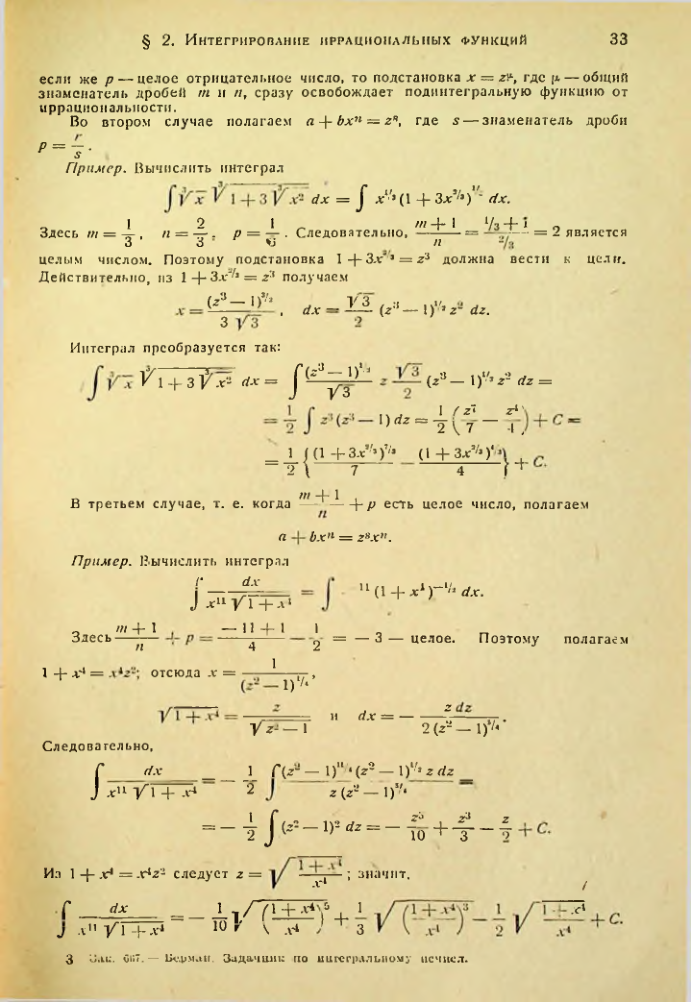 § 2. Интегрирование иррациональных функций 33
если же p — целое отрицательное число, то подстановка x = z^μ, где μ — общий
знаменатель дробей m и n, сразу освобождает подинтегральную функцию от
иррациональности.
Во втором случае полагаем a + bxⁿ = zˢ, где s — знаменатель дроби
p = r/s.
Пример. Вычислить интеграл
∫ ∛x ∛(1 + 3 ∛x²) dx = ∫ x^{1/3} (1 + 3x^{2/3})^{1/3} dx.
Здесь m = 1/3, n = 2/3, p = 1/3. Следовательно, (m + 1)/n = (1/3 + 1)/(2/3) = 2 является
целым числом. Поэтому подстановка 1 + 3x^{2/3} = z³ должна вести к цели.
Действительно, из 1 + 3x^{2/3} = z³ получаем
x = (z³ — 1)^{3/2} / (3 √3), dx = (√3/2) (z³ — 1)^{1/2} z² dz.
Интеграл преобразуется так:
∫ ∛x ∛(1 + 3 ∛x²) dx = ∫ ((z³ — 1)^{1/2} / √3) z (√3/2) (z³ — 1)^{1/2} z² dz =
= 1/2 ∫ z³ (z³ — 1) dz = 1/2 (z⁷/7 — z⁴/4) + C =
= 1/2 {(1 + 3x^{2/3})^{7/3} / 7 — (1 + 3x^{2/3})^{4/3} / 4} + C.
В третьем случае, т. е. когда (m + 1)/n + p есть целое число, полагаем
a + bxⁿ = zˢxⁿ.
Пример. Вычислить интеграл
∫ dx / (x¹¹ √(1 + x⁴)) = ∫ ¹¹ (1 + x⁴)^{—1/2} dx.
Здесь (m + 1)/n + p = (— 11 + 1)/4 — 1/2 = — 3 — целое. Поэтому полагаем
1 + x⁴ = x⁴z²; отсюда x = 1 / (z² — 1)^{1/4},
√(1 + x⁴) = z / √(z² — 1) и dx = — z dz / (2 (z² — 1)^{5/4}).
Следовательно,
∫ dx / (x¹¹ √(1 + x⁴)) = — 1/2 ∫ (z² — 1)^{11/4} (z² — 1)^{1/2} z dz / (z (z² — 1)^{5/4}) =
= — 1/2 ∫ (z² — 1)² dz = — z⁵/10 + z³/3 — z/2 + C.
Из 1 + x⁴ = x⁴z² следует z = √((1 + x⁴)/x⁴); значит,
∫ dx / (x¹¹ √(1 + x⁴)) = — 1/10 √(((1 + x⁴)/x⁴)⁵) + 1/3 √(((1 + x⁴)/x⁴)³) — 1/2 √((1 + x⁴)/x⁴) + C.
3 Зак. 667. — Берман. Задачник по интегральному исчисл.